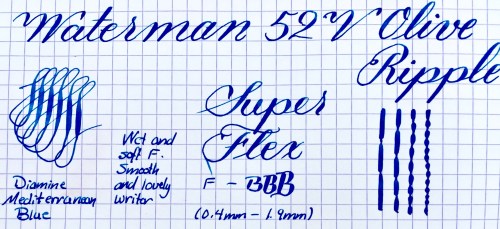 Waterman 52V Olive
Ripple
Super
Flex
F - BBB
(0.4mm - 1.9mm)
Wet and
soft F.
Smooth
and lovely
writer
Diamine
Mediterranean
Blue